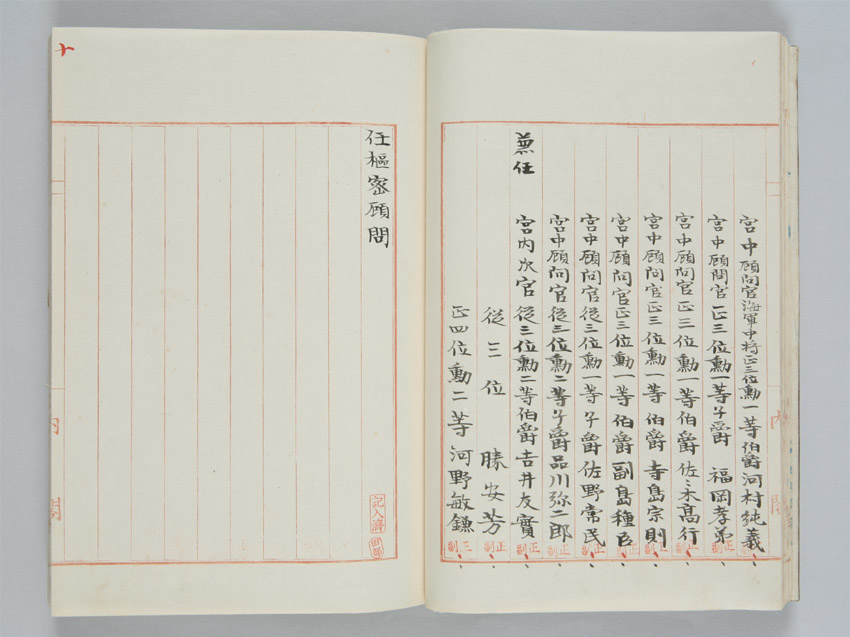 宮中顧問官海軍中将正三位勲一等伯爵河村純義
宮中顧問官正三位勲一等子爵福岡孝弟
宮中顧問官正三位勲一等伯爵佐々木高行
宮中顧問官正三位勲一等伯爵寺島宗則
宮中顧問官正三位勲一等伯爵副島種臣
宮中顧問官従三位勲一等子爵佐野常民
宮中顧問官従三位勲二等子爵品川弥二郎
兼任 宮内次官従三位勲二等伯爵吉井友實
従三位 勝安芳
正四位勲二等河野敏鎌
任樞密顧問
記入濟
十
内閣